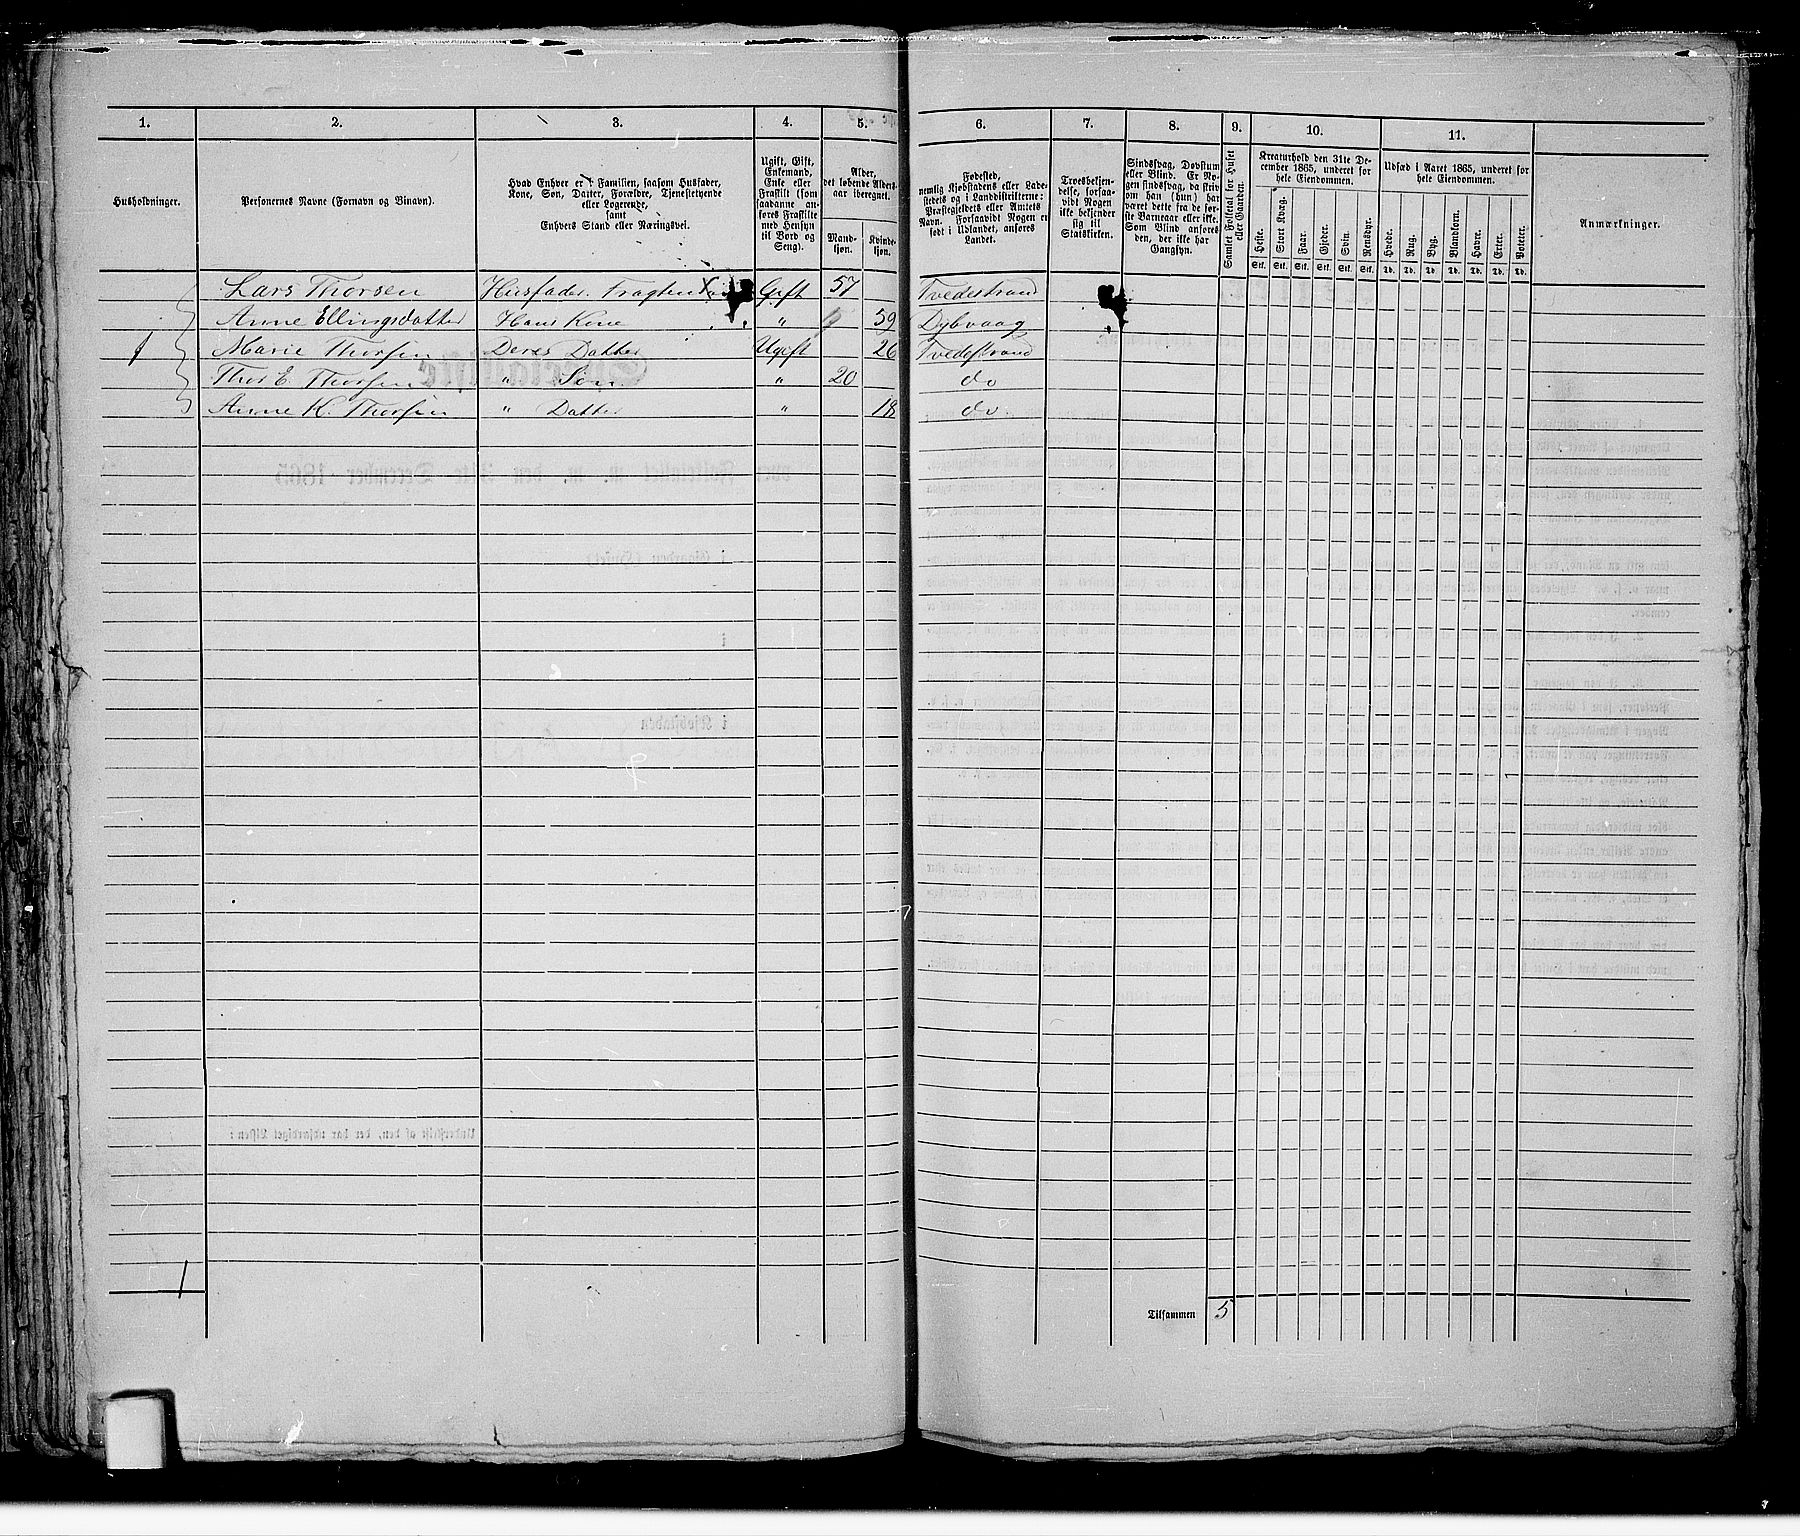 1. 2. 3. 4. 5. 6. 7. 8. 9. 10. 11.
Husholdninger.
Personernes Navne (Fornavn og Binavn).
Hvad Enhver er i Familien, saasom Husfader,
Kone, Søn, Datter, Forældre, Tjenestetyende
eller Logerende,
samt
Enhvers Stand eller Næringsvei.
Ugift, Gift,
Enkemand,
Enke eller
Fraskilt (som
saadanne an-
føres Fraskilte
med Hensyn
til Bord og
Seng).
Alder,
det løbende Alders-
aar iberegnet.
Mand-
kjøn.
Kvinde-
kjøn.
Fødested,
nemlig Kjøbstadens eller Lade-
stedets og i Landdistrikterne:
Præstegjeldets eller Amtets
Navn. Forsaavidt Nogen er
født i Udlandet, anføres
Landet.
Troesbekjen-
delse, forsaa-
vidt Nogen
ikke bekjender
sig til
Statskirken.
Sindssvag, Døvstum
eller Blind. Er No-
gen sindssvag, da skriv
om han (hun) har
været dette fra de før-
ste Barneaar eller ikke.
Som Blind anføres
den, der ikke har
Gangsyn.
Samlet Folketal for Huset
eller Gaarden.
Kreaturhold den 31te De-
cember 1865, underet for
hele Eiendommen.
Heste. Stort Kvæg. Faar. Gjeder. Svin. Rensdyr.
Stk. Stk. Stk. Stk. Stk. Stk.
Udsæd i Aaret 1865, underet for
hele Eiendommen.
Hvede. Rug. Byg. Blandkorn. Havre. Erter. Poteter.
Td. Td. Td. Td. Td. Td. Td.
Anmærkninger.
Lars Thorsen Husfader. Gift 57 Tvedestrand
Anne Ellingsdatter Hans Kone " 59 Dybvaag
1 Marie Thorsen Deres Datter Ugift 26 Tvedestrand
Thor E. Thorsen " Søn " 20 do
Anne K. Thorsen " Datter " 18 do
1
Tilsammen 5